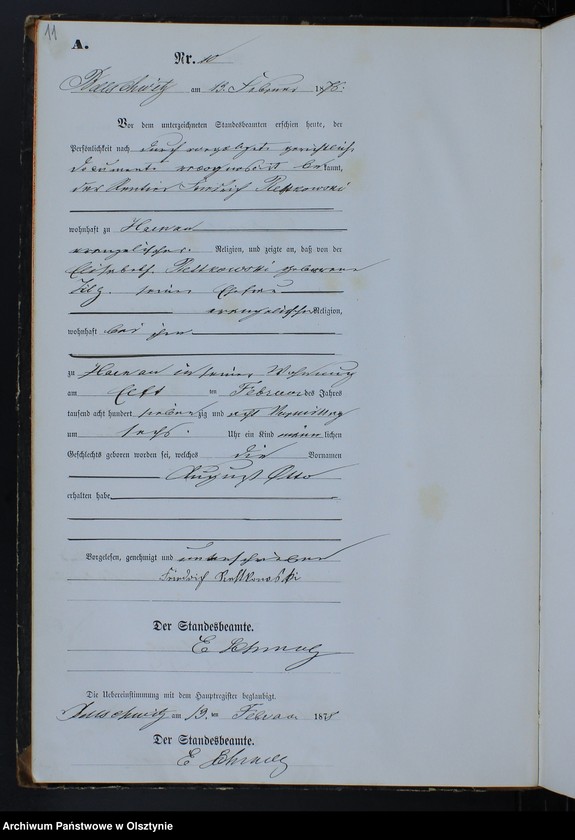 11
A.
Nr. 10
am 13. Februar 1878.
Vor dem unterzeichneten Standesbeamten erschien heute, der
Persönlichkeit nach durch vorgelegte gerichtliche
Documente recognoscirt bekannt,
der Rentier Friedrich Rettkowski
wohnhaft zu Hanswalde
evangelischer Religion, und zeigte an, daß von der
Elisabeth Rettkowski geborene
seiner Ehefrau
evangelischer Religion,
wohnhaft bei ihm
zu in seiner Wohnung
am elft ten Februar des Jahres
tausend acht hundert siebenzig und acht Vormittag
um sechs Uhr ein Kind männlichen
Geschlechts geboren worden sei, welches die Vornamen
August Otto
erhalten habe
Vorgelesen, genehmigt und unterschrieben
Friedrich Rettkowski
Der Standesbeamte.
E
Die Uebereinstimmung mit dem Hauptregister beglaubigt.
am 13. ten Februar 1878
Der Standesbeamte.
E
Archiwum Państwowe w Olsztynie